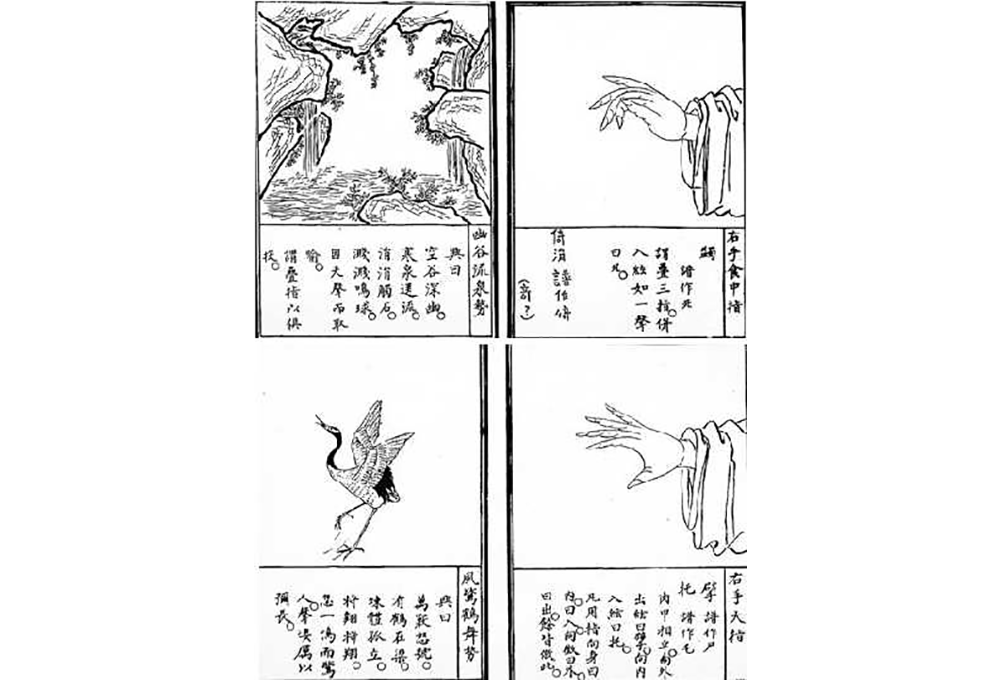 右手食中指
蠲
譜作
謂疊三
併
入絃如一聲
曰
倚涓 譜作併
(奇?)
幽谷流泉勢
興曰
空谷深幽。
寒泉迸流。
涓涓觸石。
濺濺鳴球。
因夫聲而取
喻。
謂疊指以俱
右手大指
擘 譜作尸
托 譜作乇
內甲相立向外
出絃曰擘。向內
入絃曰托。
凡用指向身曰
內曰入。向徽曰外
曰出。餘皆倣此。
風驚鶴舞勢
興曰
萬竅怒號。
有鶴在梁。
竦體孤立。
將翱將翔。
忽一鳴而驚
人。聲淒厲以
彌長。